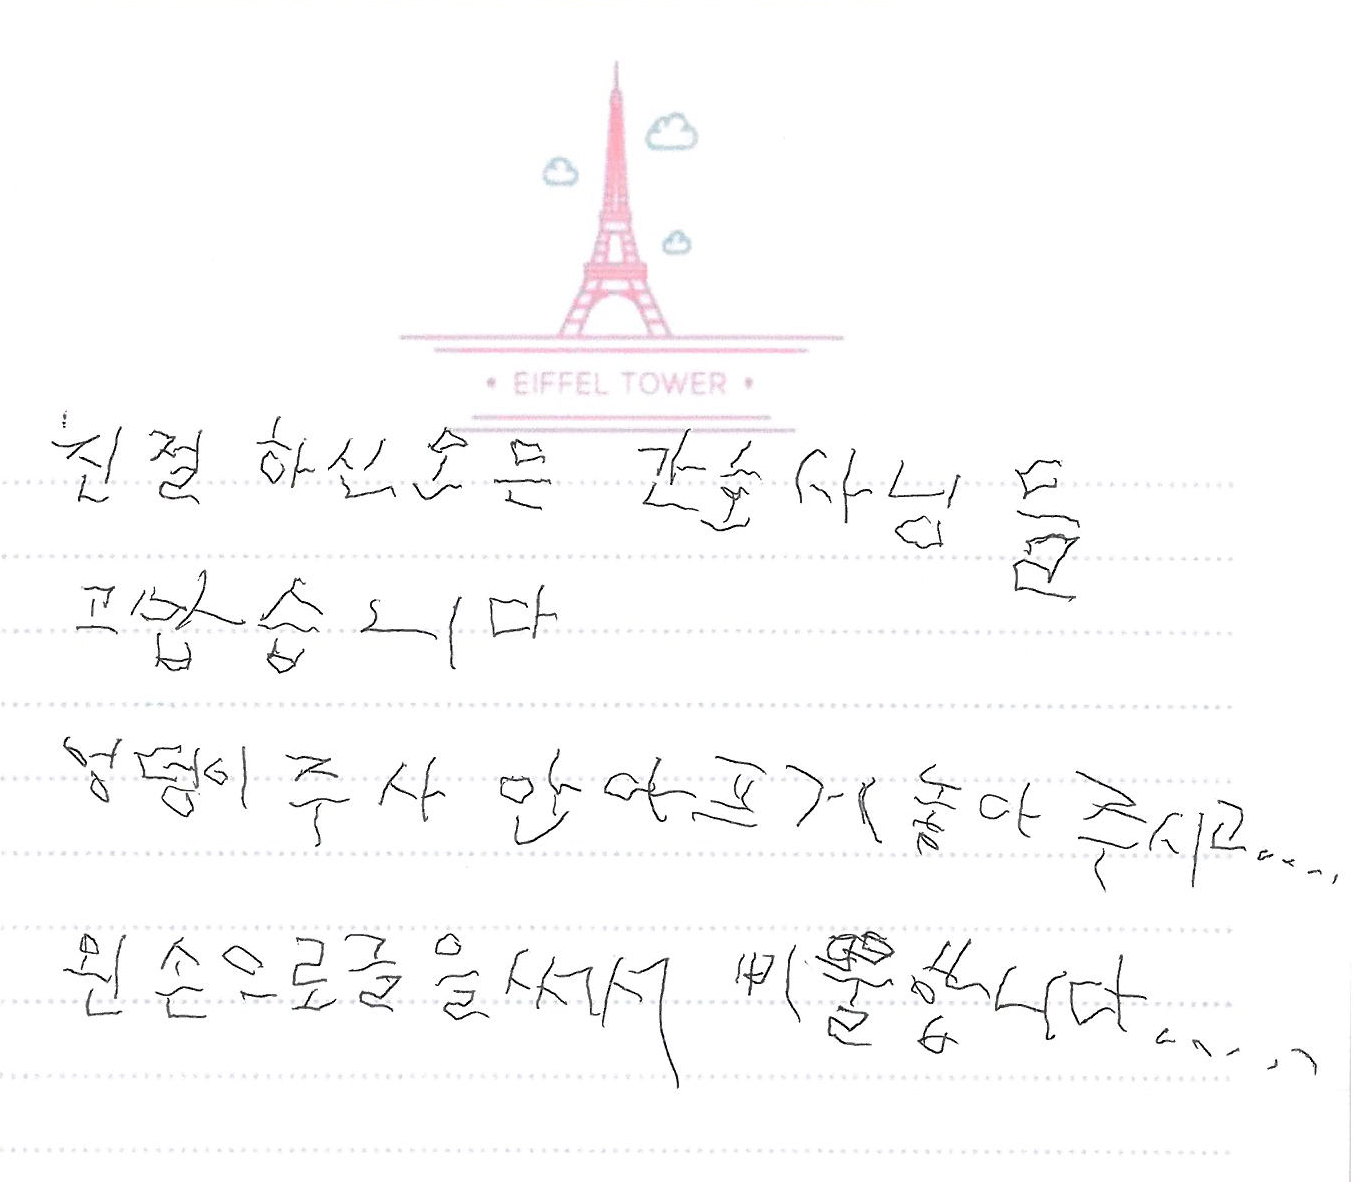 • EIFFEL TOWER •
친절 하신 모든 간호사님 들
고맙습니다
엉덩이 주사 안 아프게 놓아 주시고.....
왼손으로 글을 써서 비뚤합니다......